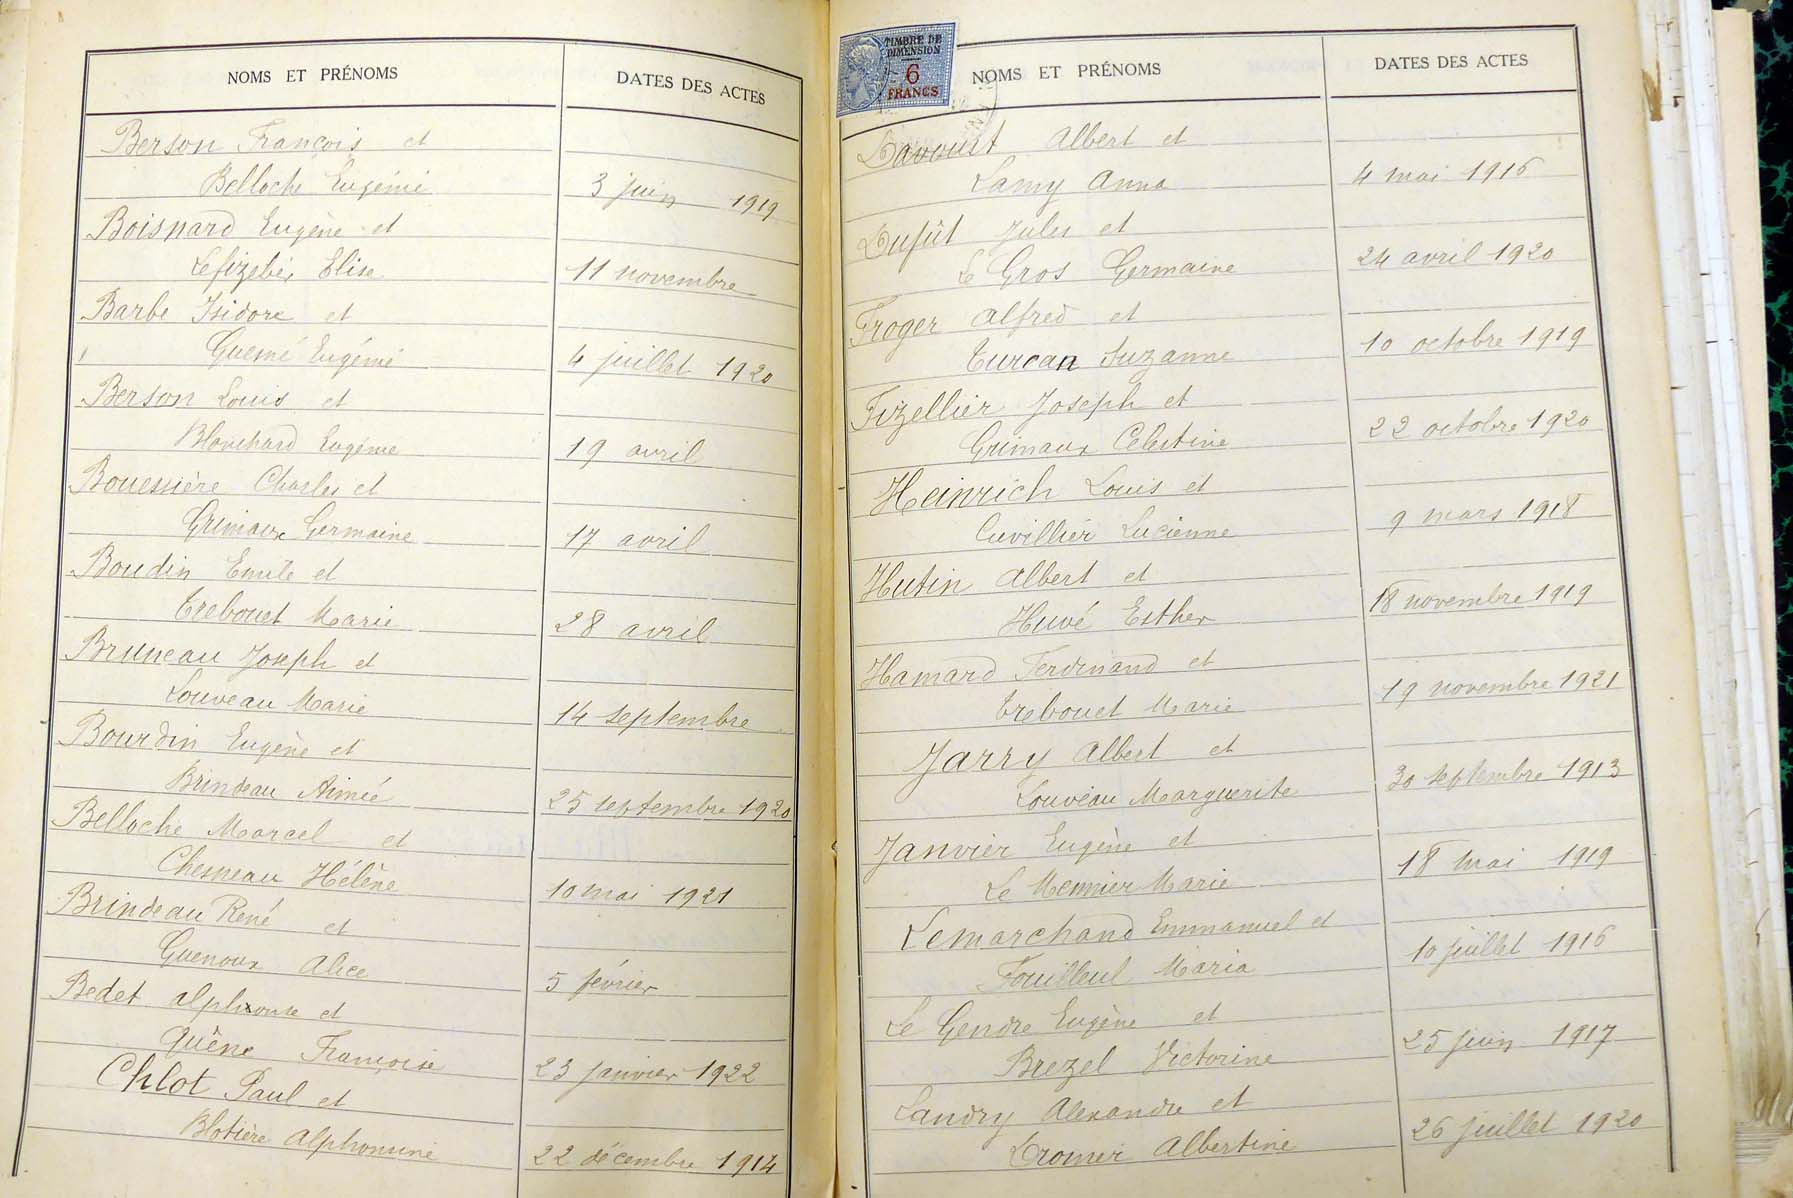 NOMS ET PRÉNOMS DATES DES ACTES
Berson François et
Belloche Eugénie 3 juin 1919
Boisnard Eugène et
Lefizelier Elise 11 novembre
Barbe Isidore et
Guesné Eugénie 4 juillet 1920
Berson Louis et
Blanchard Eugénie 19 avril
Bouessière Charles et
Grimaux Germaine 17 avril
Boudin Emile et
Trebouet Marie 28 avril
Bruneau Joseph et
Louveau Marie 14 septembre
Bourdin Eugène et
Brindeau Aimée 25 septembre 1920
Belloche Marcel et
Chesneau Hélène 10 mai 1921
Brindeau René et
Guenoux Alice 5 février
Bedet Alphonse et
Quène Françoise 23 janvier 1922
Chlot Paul et
Blotière Alphonsine 22 décembre 1914
TIMBRE DE
DIMENSION
6
FRANCS
NOMS ET PRÉNOMS DATES DES ACTES
Davoust Albert et
Lamy Anna 4 mai 1916
Dufût Jules et
Le Gros Germaine 24 avril 1920
Froger Alfred et
Turcan Suzanne 10 octobre 1919
Fizellier Joseph et
Grimaux Célestine 22 octobre 1920
Heinrich Louis et
Cuvillier Lucienne 9 mars 1918
Hutin Albert et
Huvé Esther 18 novembre 1919
Hamard Ferdinand et
Trebouet Marie 19 novembre 1921
Jarry Albert et
Louveau Marguerite 30 septembre 1913
Janvier Eugène et
Le Mennier Marie 18 mai 1919
Lemarchand Emmanuel et
Fouilleul Maria 10 juillet 1916
Le Gendre Eugène et
Brezel Victorine 25 juin 1917
Landry Alexandre et
Dromer Albertine 26 juillet 1920